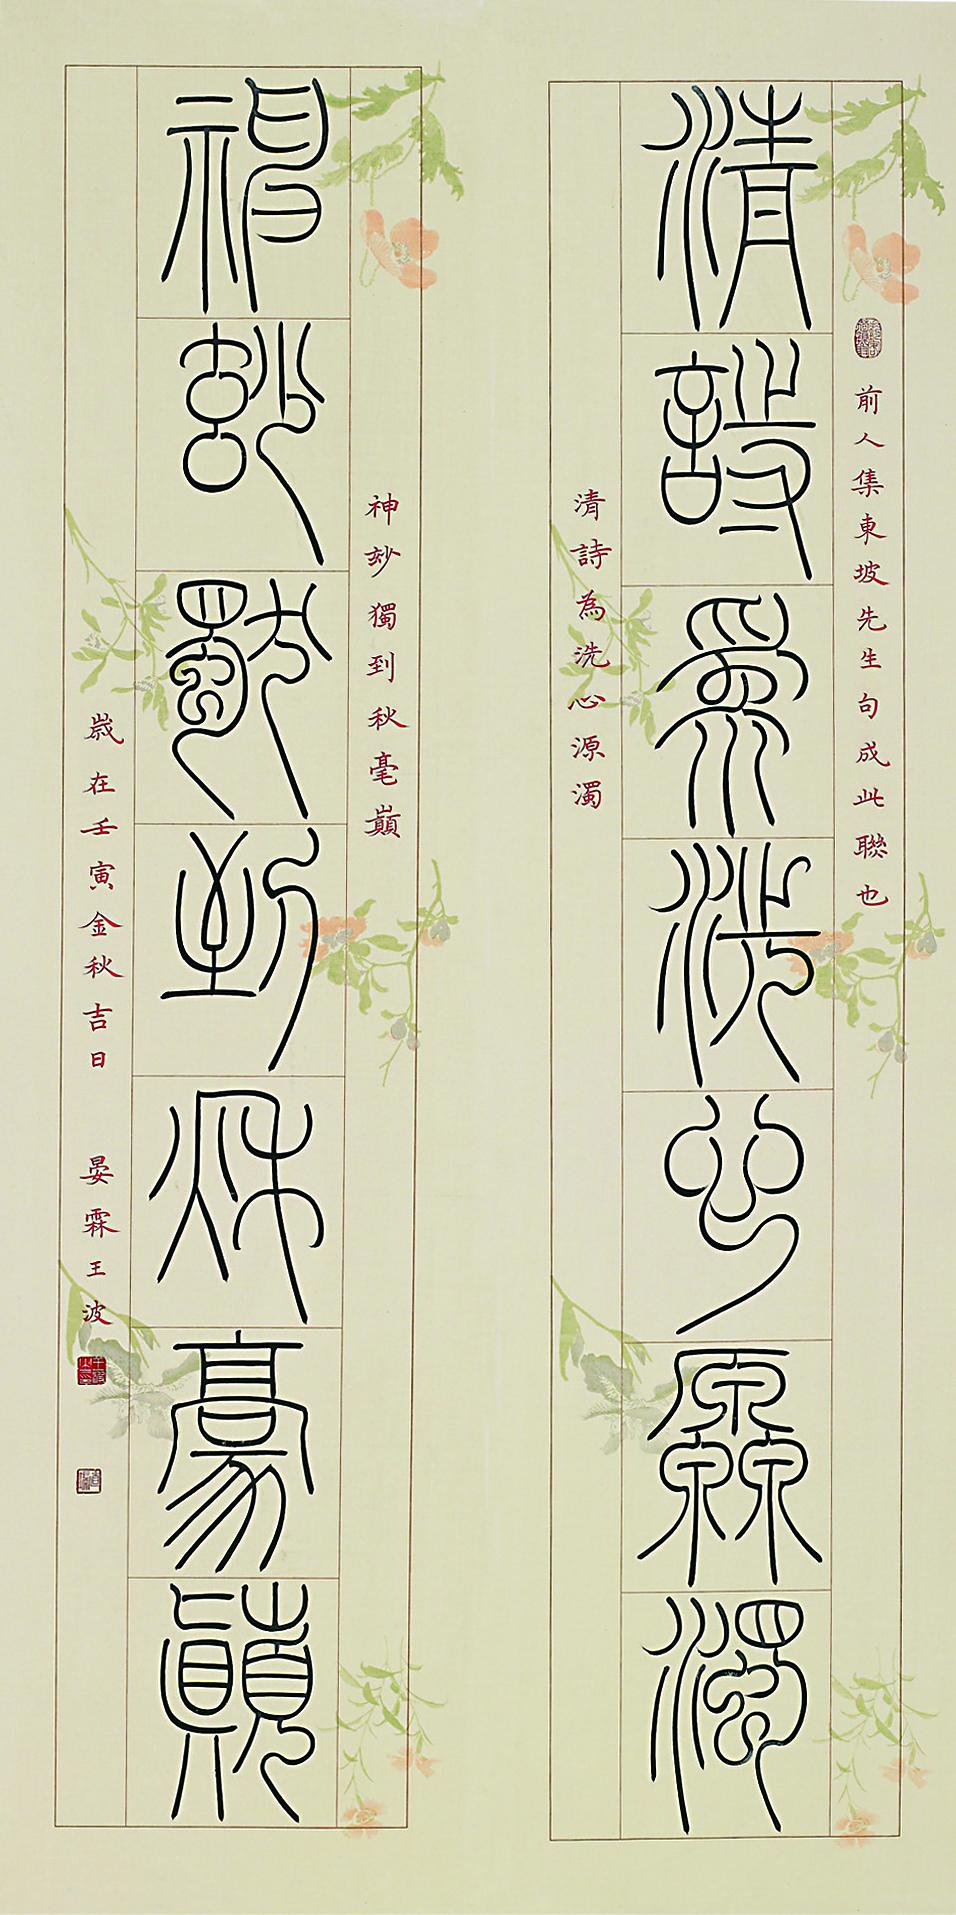 前人集東坡先生句成此聯也
清詩為洗心源濁
清詩為洗心源濁
神玅獨到秋毫巔
神玅獨到秋豪巔
歲在壬寅金秋吉日 晏霖王波